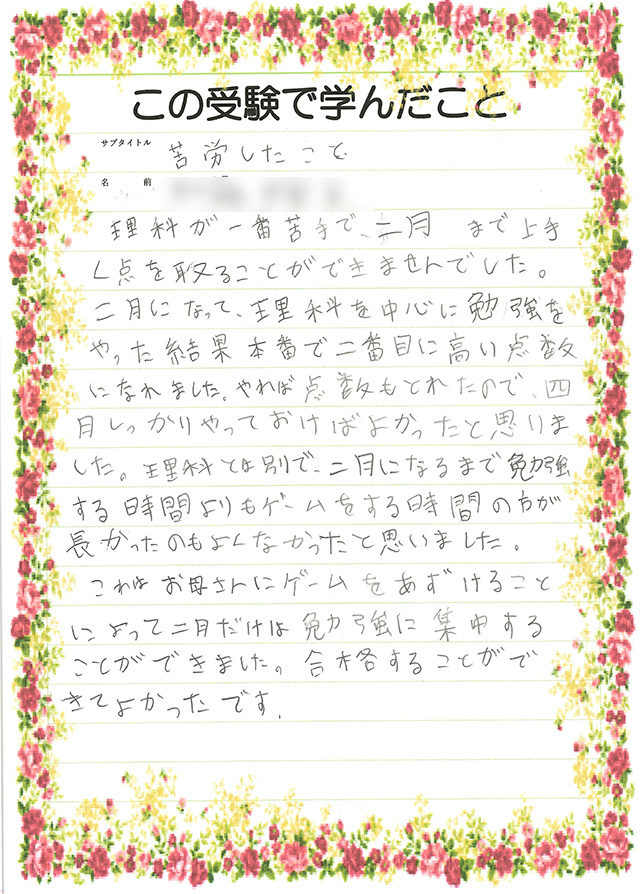 この受験で学んだこと
サブタイトル 苦労したこと
名 前
理科が一番苦手で、二月 まで上手
く点を取ることができませんでした。
二月になって、理科を中心に勉強を
やった結果本番で二番目に高い点数
になれました。やれば点数もとれたので、四
月しっかりやっておけばよかったと思いま
した。理科とは別で、二月になるまで勉強
する時間よりもゲームをする時間の方が
長かったのもよくなかったと思いました。
これはお母さんにゲームをあずけること
によって二月だけは勉強に集中する
ことができました。合格することがで
きてよかったです。